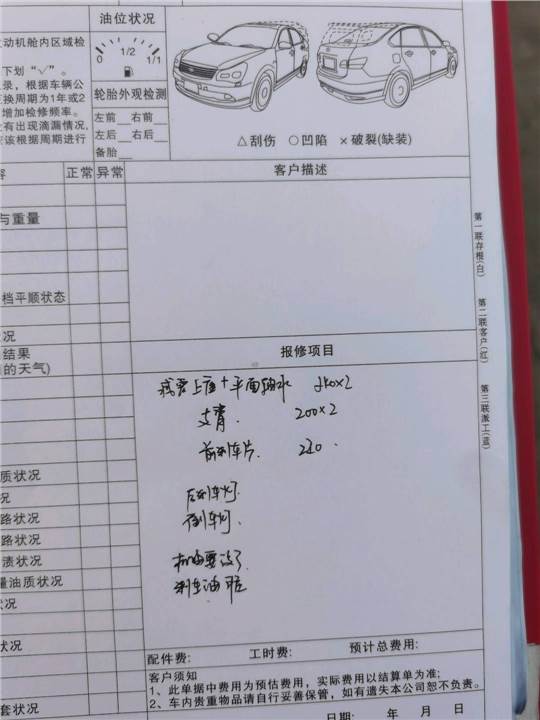 油位状况
动机舱内区域检
下划“√”。
录，根据车辆公
换周期为1年或2
增加检修频率。
有出现滴漏情况,
应该根据周期进行
0 1/2 1/1
轮胎外观检测
左前 右前
左后 右后
备胎
△刮伤 ○凹陷 ×破裂(缺装)
容 正常 异常
客户描述
与重量
档平顺状态
况
结果
的天气)
质状况
况
路状况
路状况
渍状况
量油质状况
状况
状况
套状况
第一联存根(白)
第二联客户(红)
第三联派工(蓝)
报修项目
上座+平面轴
200×2
前刹车片.
后刹车灯.
倒车灯.
机油要
刹车油
配件费: 工时费: 预计总费用:
客户须知
1、此单据中费用为预估费用，实际费用以结算单为准;
2、车内贵重物品请自行妥善保管，如有遗失本公司恕不负责。
日期: 年 月 日